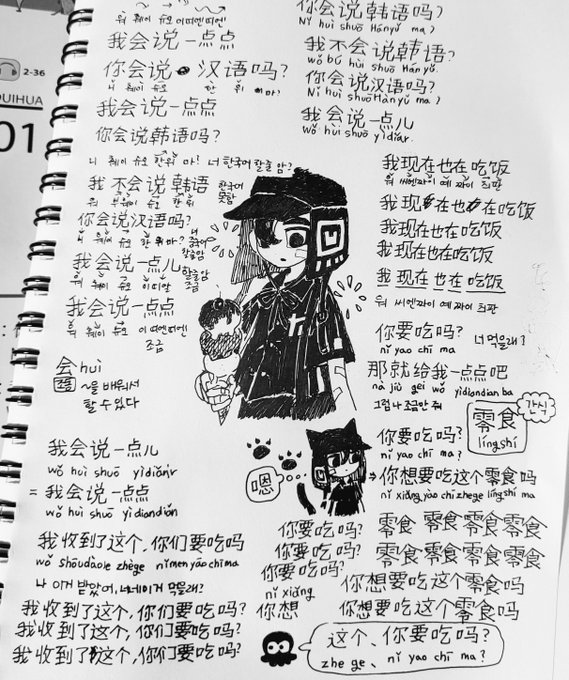 2-36
UIHUA
01
워 훼이 슈오 이띠엔띠엔
我会说一点点
你会说汉语吗?
니 훼이 슈오 한 위 마?
我会说一点点
你会说韩语吗?
니 훼이 슈오 한위 마! 너 한국어 할줄 앎?
我不会说韩语
한국어 못함
워 부훼이 슈오 한위
你会说汉语吗?
니 훼이 슈오 한위마?
너 중국어 할줄앎
我会说一点儿
할줄앎 조금
워 훼이 슈오 이띠얄
我会说一点点
워 훼이 슈오 이띠엔띠엔
조금
会 huì
조동 ~을 배워서
할 수 있다
我会说一点儿
wǒ huì shuō yìdiǎnr
= 我会说一点点
wǒ huì shuō yìdiǎndiǎn
我收到了这个,你们要吃吗
wǒ shōudàole zhège nǐmen yào chī ma
나 이거 받았어, 너네 이거 먹을래?
我收到了这个,你们要吃吗?
我收到了这个,你们要吃吗?
我收到了这个,你们要吃吗?
你会说韩语吗?
Nǐ huì shuō Hányǔ ma?
我不会说韩语.
wǒ bú huì shuō Hányǔ.
你会说汉语吗?
Nǐ huì shuō Hànyǔ ma?
我会说一点儿
wǒ huì shuō yìdiǎr.
我现在也在吃饭
워 씨엔짜이 예 짜이 츠판
我现在也在吃饭
我现在也在吃饭
我现在也在吃饭
我现在也在吃饭
워 씨엔짜이 예 짜이 츠판
你要吃吗? 너 먹을래?
ni yao chī ma
那就给我一点点吧
nà jiù gei wǒ yìdiandian ba
그럼 나 조금만 줘
간식
零食
língshí
你要吃吗?
ni yao chī ma?
嗯
→你想要吃这个零食吗
ni xiǎng yào chī zhege língshí ma
你要吃吗?
你要吃吗?
你要吃吗?
nǐ xiǎng
你想
零食 零食零食零食
零食 零食零食零食
你想要吃这个零食吗
你想要吃这个零食吗
这个、你要吃吗?
zhe ge、nǐ yao chī ma?